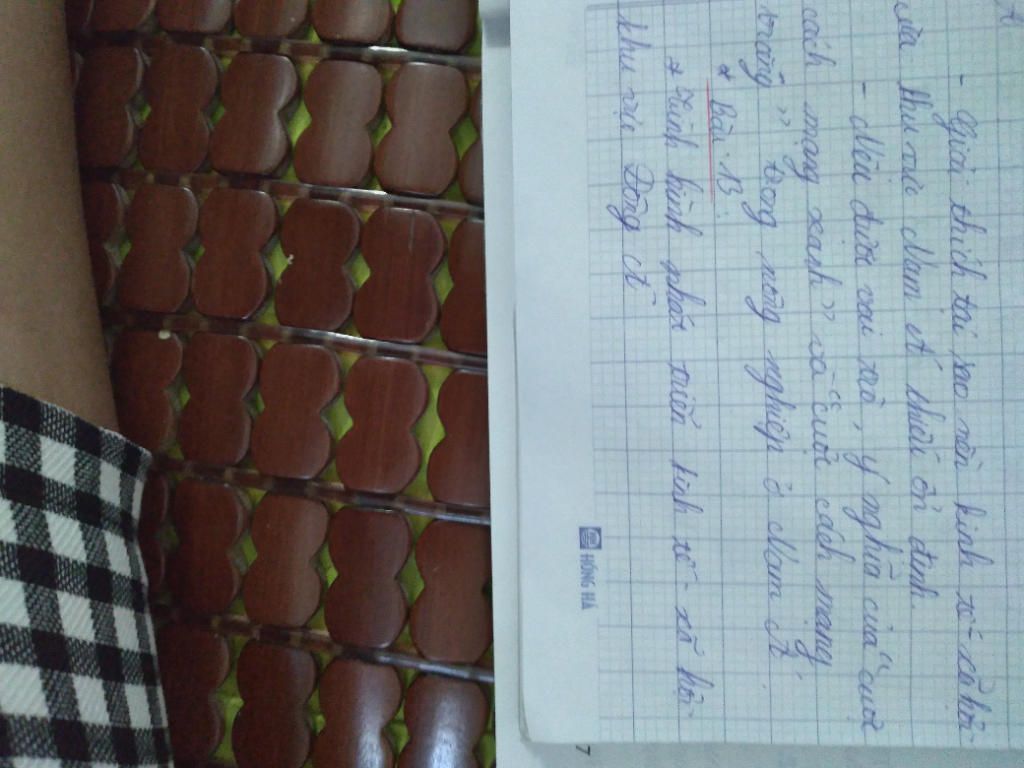 A
- Giải thích tại sao nền kinh tế - xã hội
của khu vực Nam Á thiếu ổn định.
- Nêu được vai trò, ý nghĩa của "cuộc
cách mạng xanh" và "cuộc cách mạng
trắng" trong nông nghiệp ở Nam Á.
* Bài 13:
* tình hình phát triển kinh tế - xã hội
khu vực Đông Á
HỒNG HÀ
7